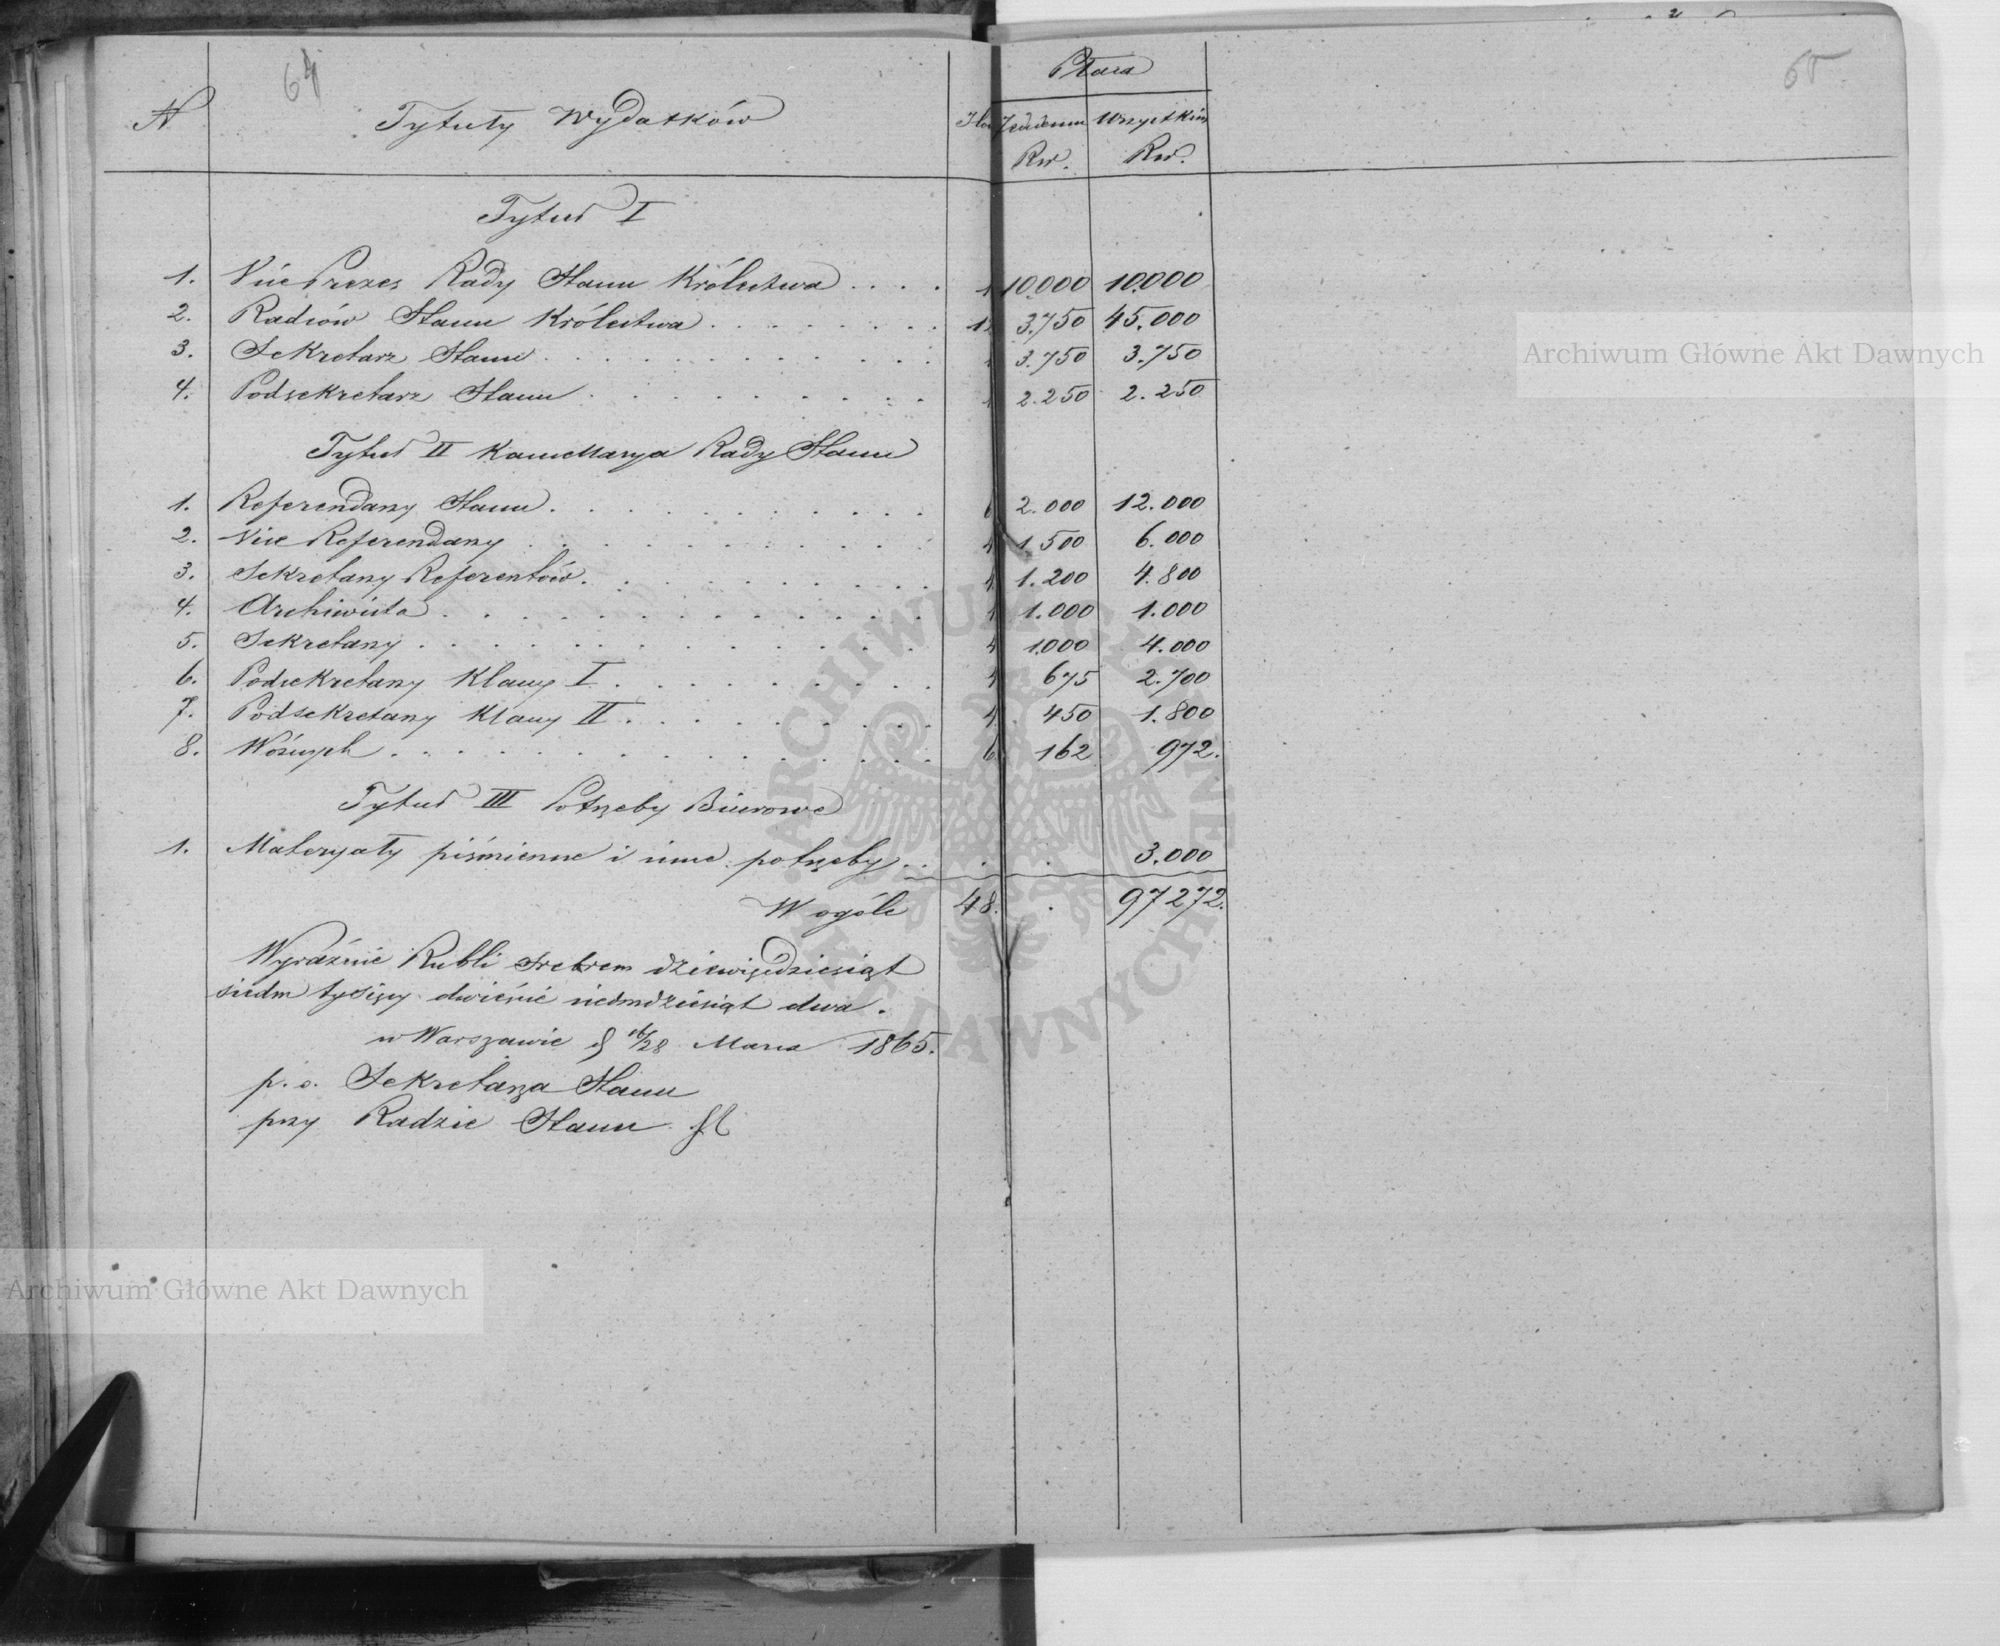 64
65
Płaca
N Tytuły Wydatków Ilość Jednemu Wszystkim
Rsr. Rsr.
Tytuł I
1. Vice Prezes Rady Stanu Królestwa . . . . 1 10.000 10.000
2. Radców Stanu Królestwa . . . . . . . . 12 3.750 45.000
3. Sekretarz Stanu . . . . . . . . . . . . 1 3.750 3.750
4. Podsekretarz Stanu . . . . . . . . . . 1 2.250 2.250
Tytuł II Kancellarya Rady Stanu
1. Referendarzy Stanu . . . . . . . . . . . 6 2.000 12.000
2. Vice Referendarzy . . . . . . . . . . . 4 1.500 6.000
3. Sekretarzy Referentów . . . . . . . . . 4 1.200 4.800
4. Archiwista . . . . . . . . . . . . . 1 1.000 1.000
5. Sekretarzy . . . . . . . . . . . . . 4 1000 4.000
6. Podsekretarzy Klassy I . . . . . . . . . 4 675 2.700
7. Podsekretarzy Klassy II . . . . . . . . . 4 450 1.800
8. Woźnych . . . . . . . . . . . . . . 6 162 972.
Tytuł III Potrzeby Biurowe
1. Materyały piśmienne i inne potrzeby . . . . 3.000
W ogóle 48. . 97272.
Wyraźnie Rubli srebrem dziewięćdziesiąt
siedm tysięcy dwieście siedmdziesiąt dwa.
w Warszawie d 16/28 Marca 1865.
p. o. Sekretarza Stanu
przy Radzie Stanu
Archiwum Główne Akt Dawnych
Archiwum Główne Akt Dawnych
ARCHIWUM GŁÓWNE AKT DAWNYCH